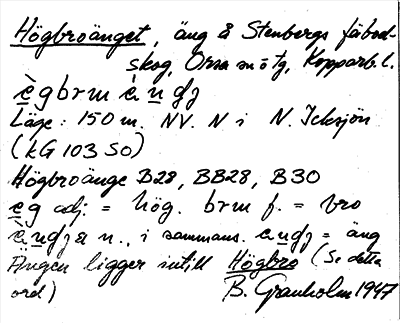 Högbroänget, äng å Stenbergs fäbod-
skog, Orsa sn ö tg, Kopparb. l.
ègbrm è n dj
Läge: 150 m. NV. N i N. Icksjön
(kG 103 SO)
Högbroänge B28, BB28, B30
èg adj. = hög. brm f. = bro
n., i sammans. = äng
Ängen ligger intill Högbro (Se detta
ord) B. Granholm 1947